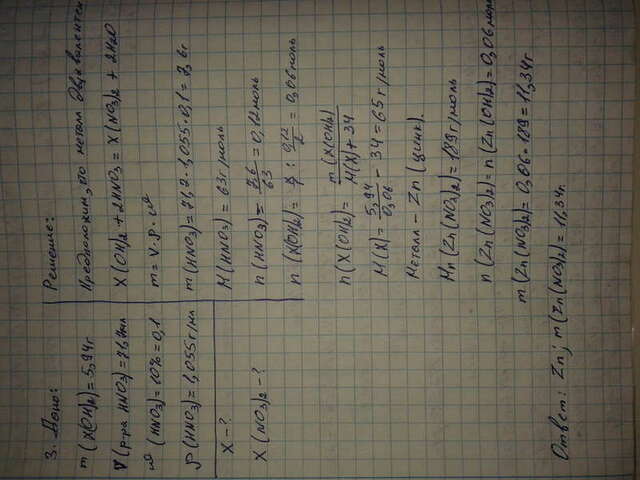 3. Дано:
m(X(OH)₂) = 5,94г
V(р-ра HNO₃) = 71,7мл
ω(HNO₃) = 10% = 0,1
ρ(HNO₃) = 1,055г/мл
X - ?
X(NO₃)₂ - ?
Решение:
Предположим, что металл двухвалентен
X(OH)₂ + 2HNO₃ = X(NO₃)₂ + 2H₂O
m = V·ρ·ω
m(HNO₃) = 71,7·1,055·0,1 = 7,6г
M(HNO₃) = 63г/моль
n(HNO₃) = 7,6/63 = 0,12моль
n(X(OH)₂) = 0,12/2 = 0,06моль
n(X(OH)₂) = m(X(OH)₂)/M(X)+34
M(X) = 5,94/0,06 - 34 = 65г/моль
Металл - Zn (цинк).
M(Zn(NO₃)₂) = 189г/моль
n(Zn(NO₃)₂) = n(Zn(OH)₂) = 0,06моль
m(Zn(NO₃)₂) = 0,06·189 = 11,34г.
Ответ: Zn; m(Zn(NO₃)₂) = 11,34г.